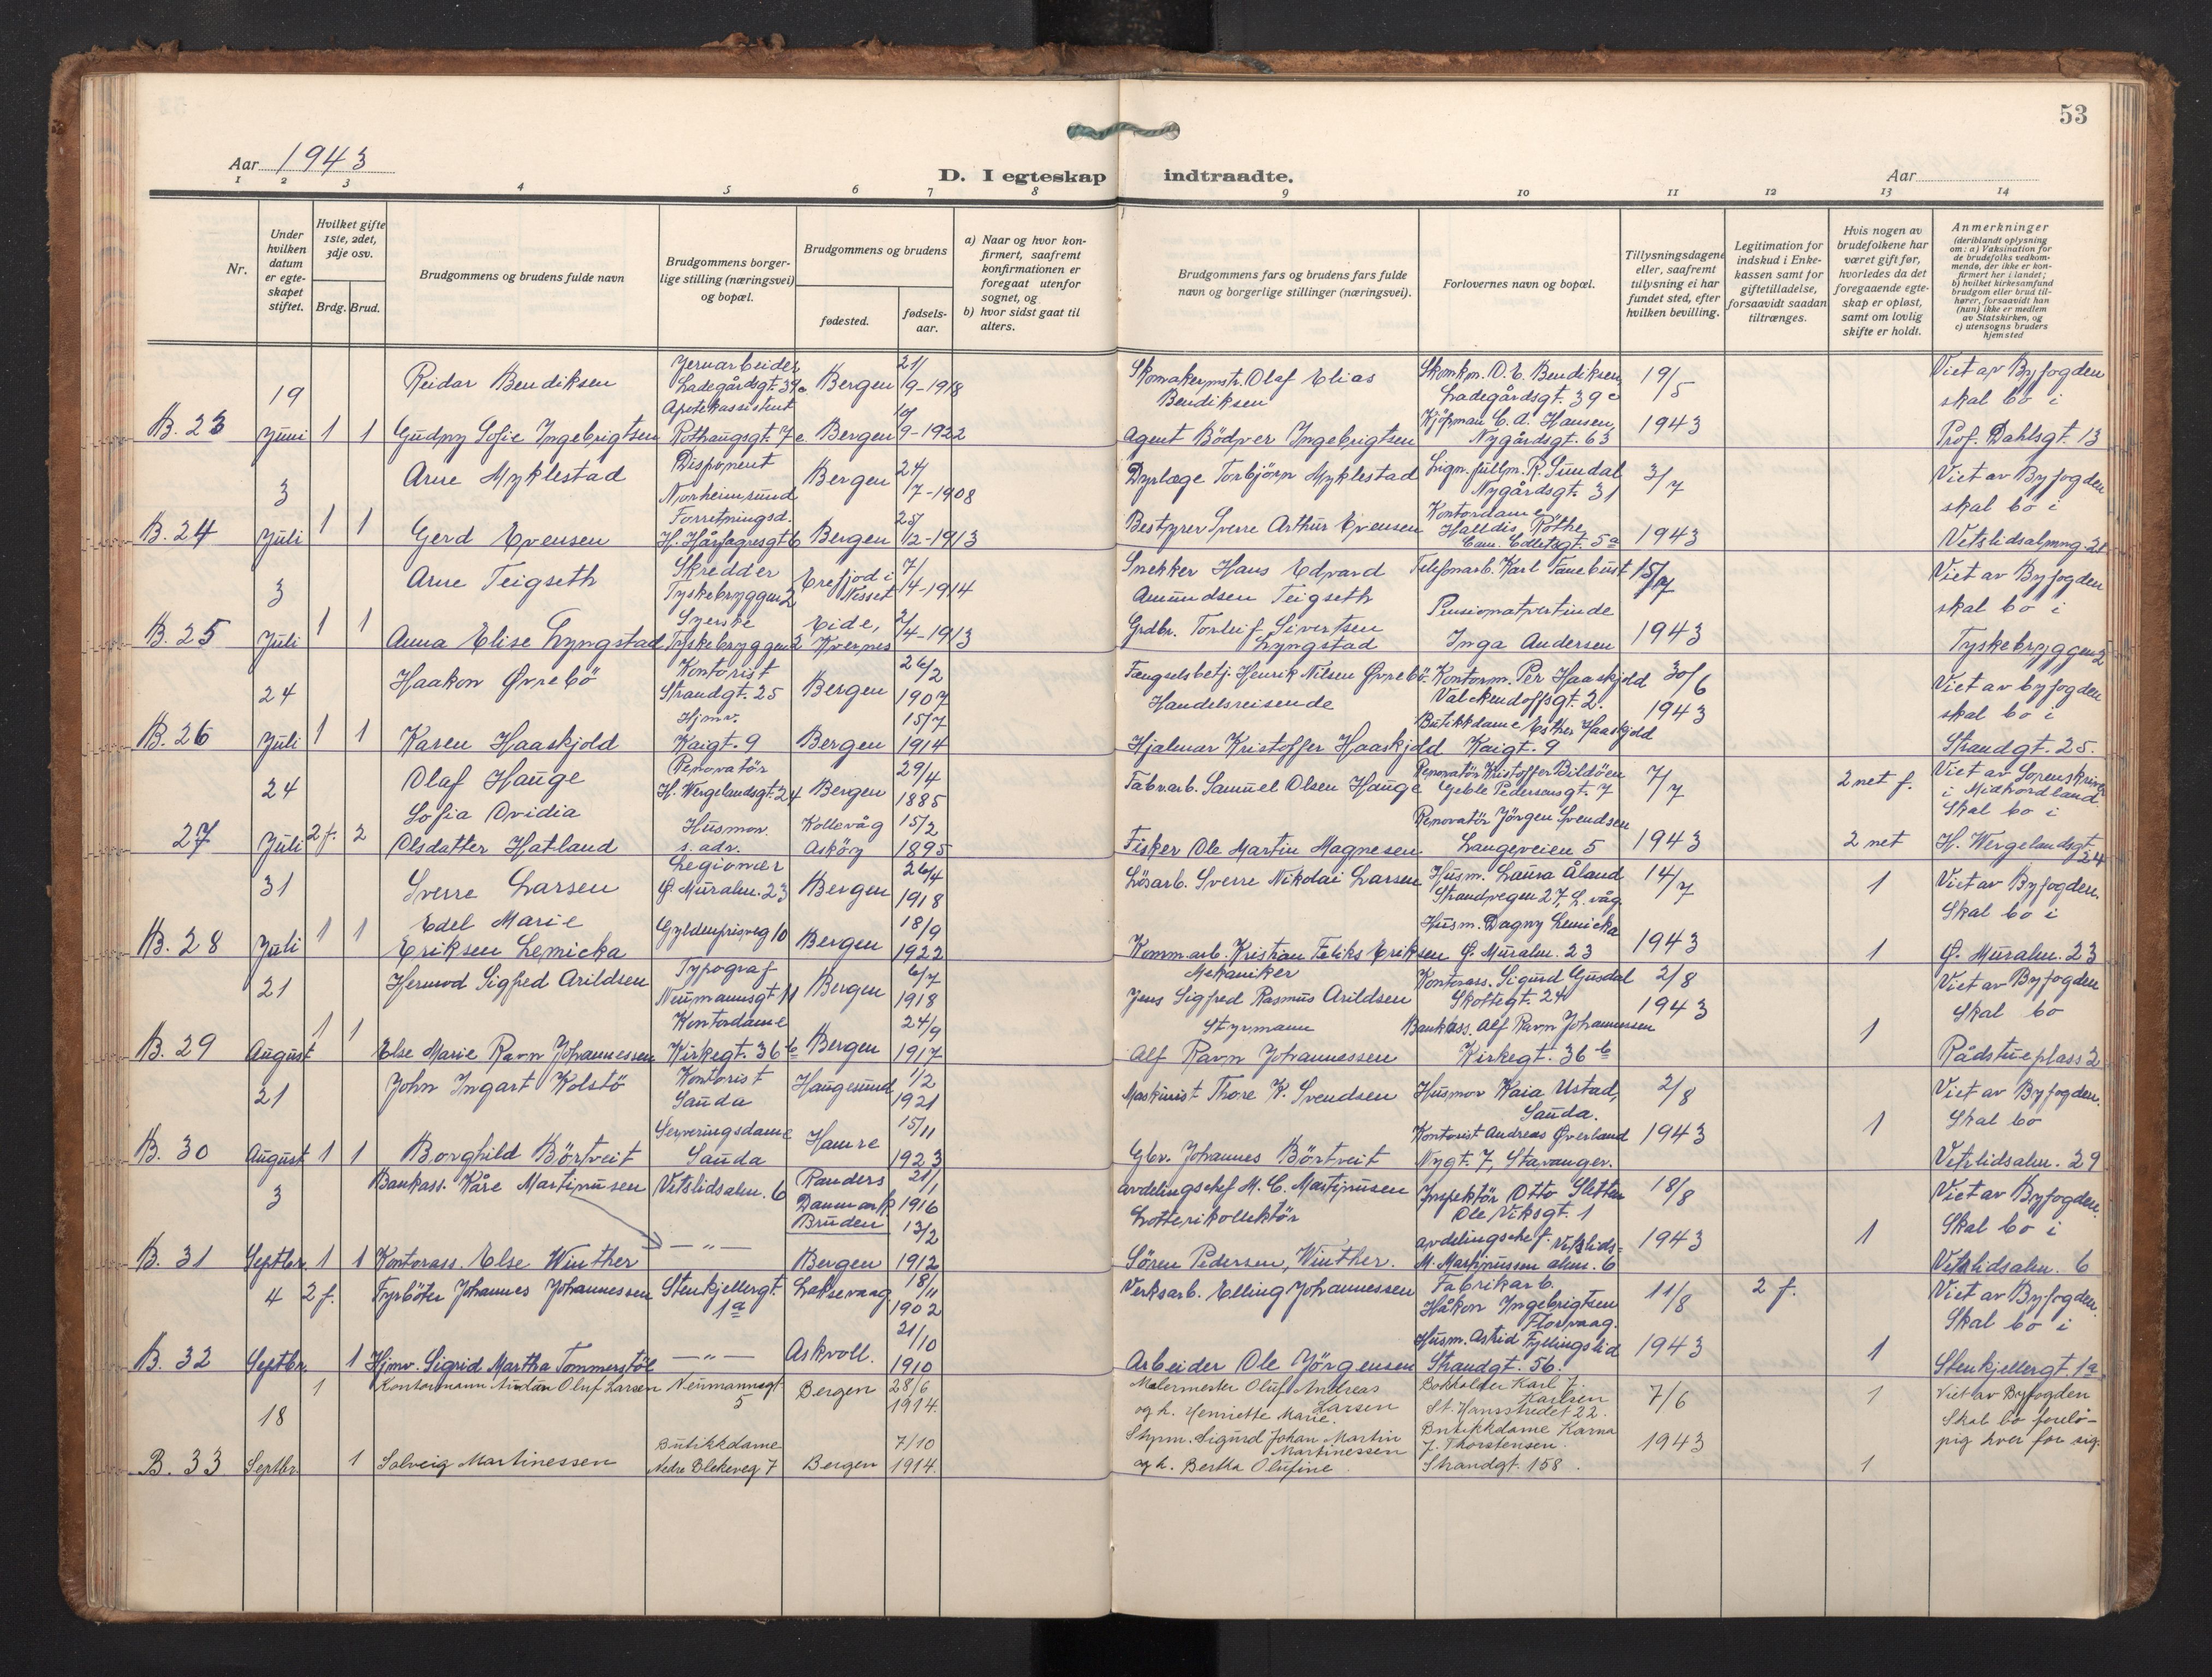 53
Aar 1943
D. I egteskap indtraadte.
Aar
1 2 3 4 5 6 7 8 9 10 11 12 13 14
Nr.
Under hvilken datum er egteskapet stiftet.
Hvilket gifte 1ste, 2det, 3dje osv.
Brdg. Brud.
Brudgommens og brudens fulde navn
Brudgommens borgerlige stilling (næringsvei) og bopæl.
Brudgommens og brudens
fødested.
fødselsaar.
a) Naar og hvor konfirmert, saafremt konfirmationen er foregaat utenfor sognet, og
b) hvor sidst gaat til alters.
Brudgommens fars og brudens fars fulde navn og borgerlige stillinger (næringsvei).
Forlovernes navn og bopæl.
Tillysningsdagene eller, saafremt tillysning ei har fundet sted, efter hvilken bevilling.
Legitimation for indskud i Enkekassen samt for giftetilladelse, forsaavidt saadan tiltrænges.
Hvis nogen av brudefolkene har været gift før, hvorledes da det foregaaende egteskap er opløst, samt om lovlig skifte er holdt.
Anmerkninger (deriblandt oplysning om: a) Vaksination for de brudefolks vedkommende, der ikke er konfirmert her i landet; b) hvilket kirkesamfund brudgom eller brud tilhører, forsaavidt han (hun) ikke er medlem av Statskirken, og c) utensogns bruders hjemsted
19 Reidar Bendiksen Jernarbeider Ladegårdsgt. 39c Bergen 21/9-1918 Skomakermstr. Olaf Elias Bendiksen Skomkm. O. E. Bendiksen Ladegårdsgt. 39c 19/5 Viet av Byfogden skal bo i
B. 23 Juni 1 1 Gudny Sofie Ingebrigtsen Apotekassistent Rothaugsgt. 7c Bergen 10/9-1922 Agent Bödver Ingebrigtsen Kjöpman C. A. Hansen, Nygårdsgt. 63 1943 Prof. Dahlsgt. 13
3 Arne Myklestad Disponent Norheimsund Bergen 24/7-1908 Dyrlæge Torbjörn Myklestad Lign. fullm. R. Sundal Nygårdsgt. 31 3/7 Viet av Byfogden skal bo i
B. 24 Juli 1 1 Gerd Evensen Forretningsd. H. Hårfagresgt 6 Bergen 25/12-1913 Bestyrer Sverre Arthur Evensen Kontordame Halldis Röthe Cam. Colletsgt. 5a 1943 Vetrlidsalmng. 21
3 Arne Teigseth Skredder Tyskebryggen 2 Eresfjod i Nesset 7/4-1914 Snekker Hans Edvard Amundsen Teigseth Telefonarb. Karl Tanebust 15/7 Viet av Byfogden skal bo i
B. 25 Juli 1 1 Anna Elise Lyngstad Syerske Tyskebryggen 2 Eide, Kvernes 2/4-1913 Grdbr. Torleif Sivertsen Lyngstad Pensionatvertinde Inga Andersen 1943 Tyskebryggen 2
24 Haakon Øvrebö Kontorist Strandgt. 25 Bergen 26/2 1907 Fængselsbetj. Henrik Nilsen Øvrebö Kontorm. Per Haaskjold Valckendoffsgt. 2. 30/6 Viet av byfogden skal bo i
B. 26 Juli 1 1 Karen Haaskjold Hjmv. Kaigt. 9 Bergen 15/7 1914 Handelsreisende Hjalmar Kristoffer Haaskjold Butikkdame Esther Haaskjold Kaigt. 9 1943 Strandgt. 25.
24 Olaf Hauge Renovatör H. Wergelandsgt. 24 Bergen 29/4 1885 Fabrarb. Samuel Olsen Hauge Renovatör Kristoffer Bildöen Geble Pedersensgt. 7 7/7 2 net f. Viet av Sorenskriver i Midhordland. Skal bo i
27 Juli 2 f. 2 Sofia Ovidia Olsdatter Hatland Husmor. s. adr. Kollevåg Asköy 15/2 1895 Fisker Ole Martin Magnesen Renovatör Jörgen Svendsen Langeveien 5 1943 2 net H. Wergelandsgt. 24
31 Sverre Larsen Legionær Ø Muralm. 23 Bergen 26/4 1918 Lösarb. Sverre Nikolai Larsen Husm. Laura Åland Strandvegen 27, L. våg. 14/7 1 Viet av Byfogden. Skal bo i
B. 28 Juli 1 1 Edel Marie Eriksen Lemicka Gyldenprisveg 10 Bergen 18/9 1922 Komm.arb. Kristian Feliks Eriksen Husm. Dagny Lemicka Ø. Muralm. 23 1943 1 Ø. Muralm. 23
21 Hermod Sigfred Arildsen Typograf Neumannsgt 11 Bergen 6/7 1918 Mekaniker Jens Sigfred Rasmus Arildsen Kontorass. Sigurd Gusdal Skottegt. 24 2/8 Viet av Byfogden Skal bo
B. 29 August 1 1 Else Marie Ravn Johannessen Kontordame Kirkegt. 36b Bergen 24/9 1917 Styrmann Alf Ravn Johannessen Bankass. Alf Ravn Johannessen Kirkegt. 36b 1943 1 Rådstueplass 2
21 John Ingart Kolstö Kontorist Sauda Haugesund 1/2 1921 Maskinist Thore K. Svendsen Husmor Kaia Ustad, Sauda. 2/8 Viet av Byfogden. Skal bo
B. 30 August 1 1 Borghild Börtveit Serveringsdame Sauda Hamre 15/11 1923 Gbr. Johannes Börtveit Kontorist Andreas Øverland Nygt. 7, Stavanger. 1943 1 Vetrlidsalm. 29
3 Bankass. Kåre Martinusen Vetrlidsalm. 6 Randers Danmark 21/1 1916 avdelingschef M. C. Martinusen Inspektör Otto Sletten Ole Viksgt. 1 18/8 Viet av Byfogden. Skal bo i
B. 31 Septbr. 1 1 Kontorass. Else Winther —"— Bruden Bergen 13/2 1912 Lotterikollektör Sören Pedersen, Winther. avdelingschef. M. Martinussen Vetrlidsalm. 6 1943 1 Vetrlidsalm. 6
4 2 f. Fyrböter Johannes Johannessen Stenkjellergt. 1a Laksevaag 18/11 1902 Verksarb. Elling Johannessen Fabrikarb. Håkon Ingebrigtsen Florvaag. 11/8 2 f. Viet av Byfogden. Skal bo i
B. 32 Septbr. 1 Hjmv. Sigrid Martha Tommerstöl —"— Askvoll. 21/10 1910 Arbeider Ole Jörgensen Husm. Astrid Fyllingslid Strandgt. 56. 1943 1 Stenkjellergt. 1a
18 1 Kontormann Audun Oluf Larsen Neumannsgt 5 Bergen 28/6 1914. Malermester Oluf Andreas Larsen og h. Henriette Marie. Bokholder Karl J. Karlsen St. Hansstredet 22. 7/6 1 Viet av Byfogden Skal bo forelöpig hver for sig.
B. 33 Septbr. 1 Solveig Martinessen Butikkdame Nedre Blekeveg 7 Bergen 7/10 1914. Styrm. Sigurd Johan Martin Martinessen og h. Bertha Olufine. Butikkdame Karna J. Thorstensen. Strandgt. 158. 1943 1